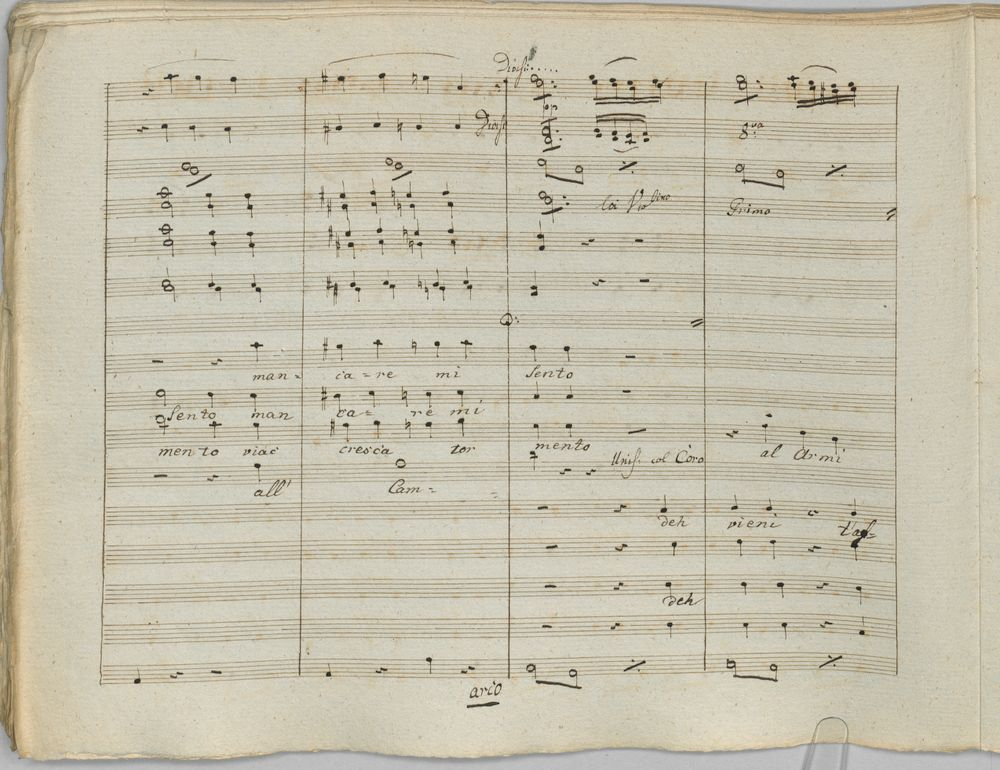 Divisi.....
Divisi
8va
Coi Violino Primo
man- ca-re mi sento
sento man ca-re mi
mento viac cresca tor mento
Unis: col Coro al Armi
all' Cam-
deh vieni t'af-
deh
arco